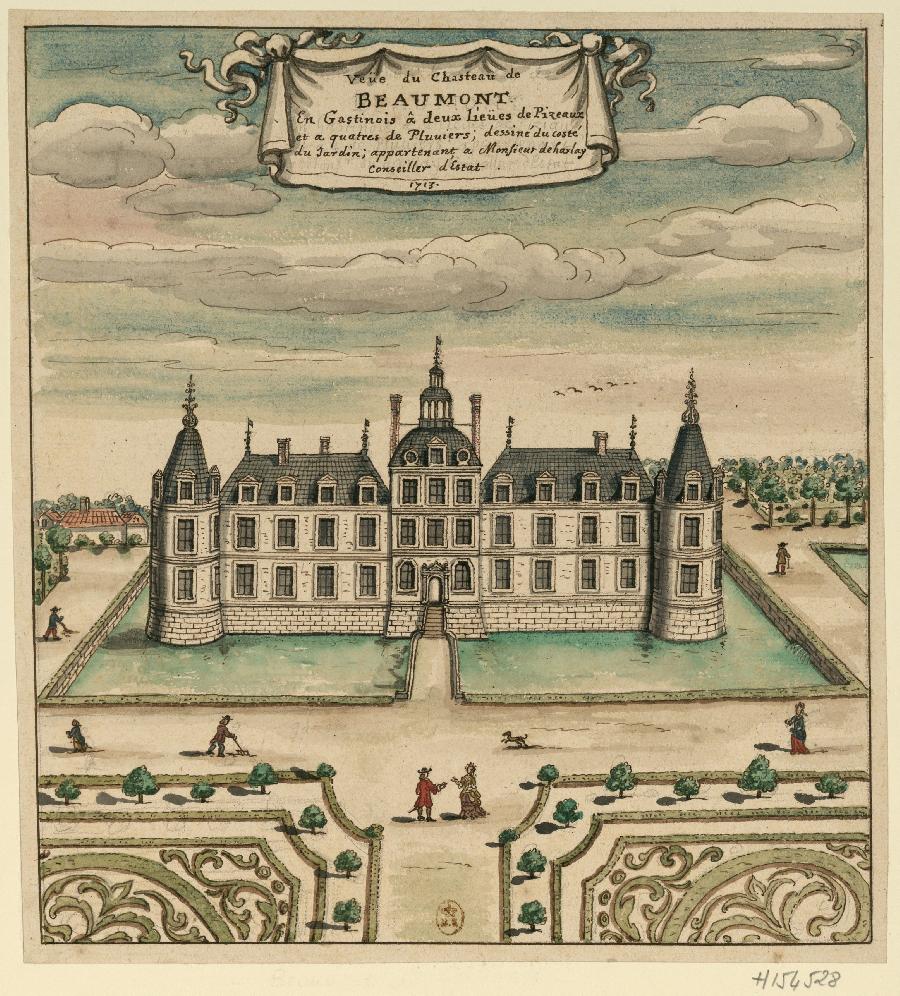 Veüe du Chasteau de
BEAUMONT.
En Gastinois â deux lieües de Pizeaux
et a quatres de Pluviers; dessiné du costé
du Jardin; appartenant a Monsieur de harlay
Conseiller d'Estat
1713.
H154528